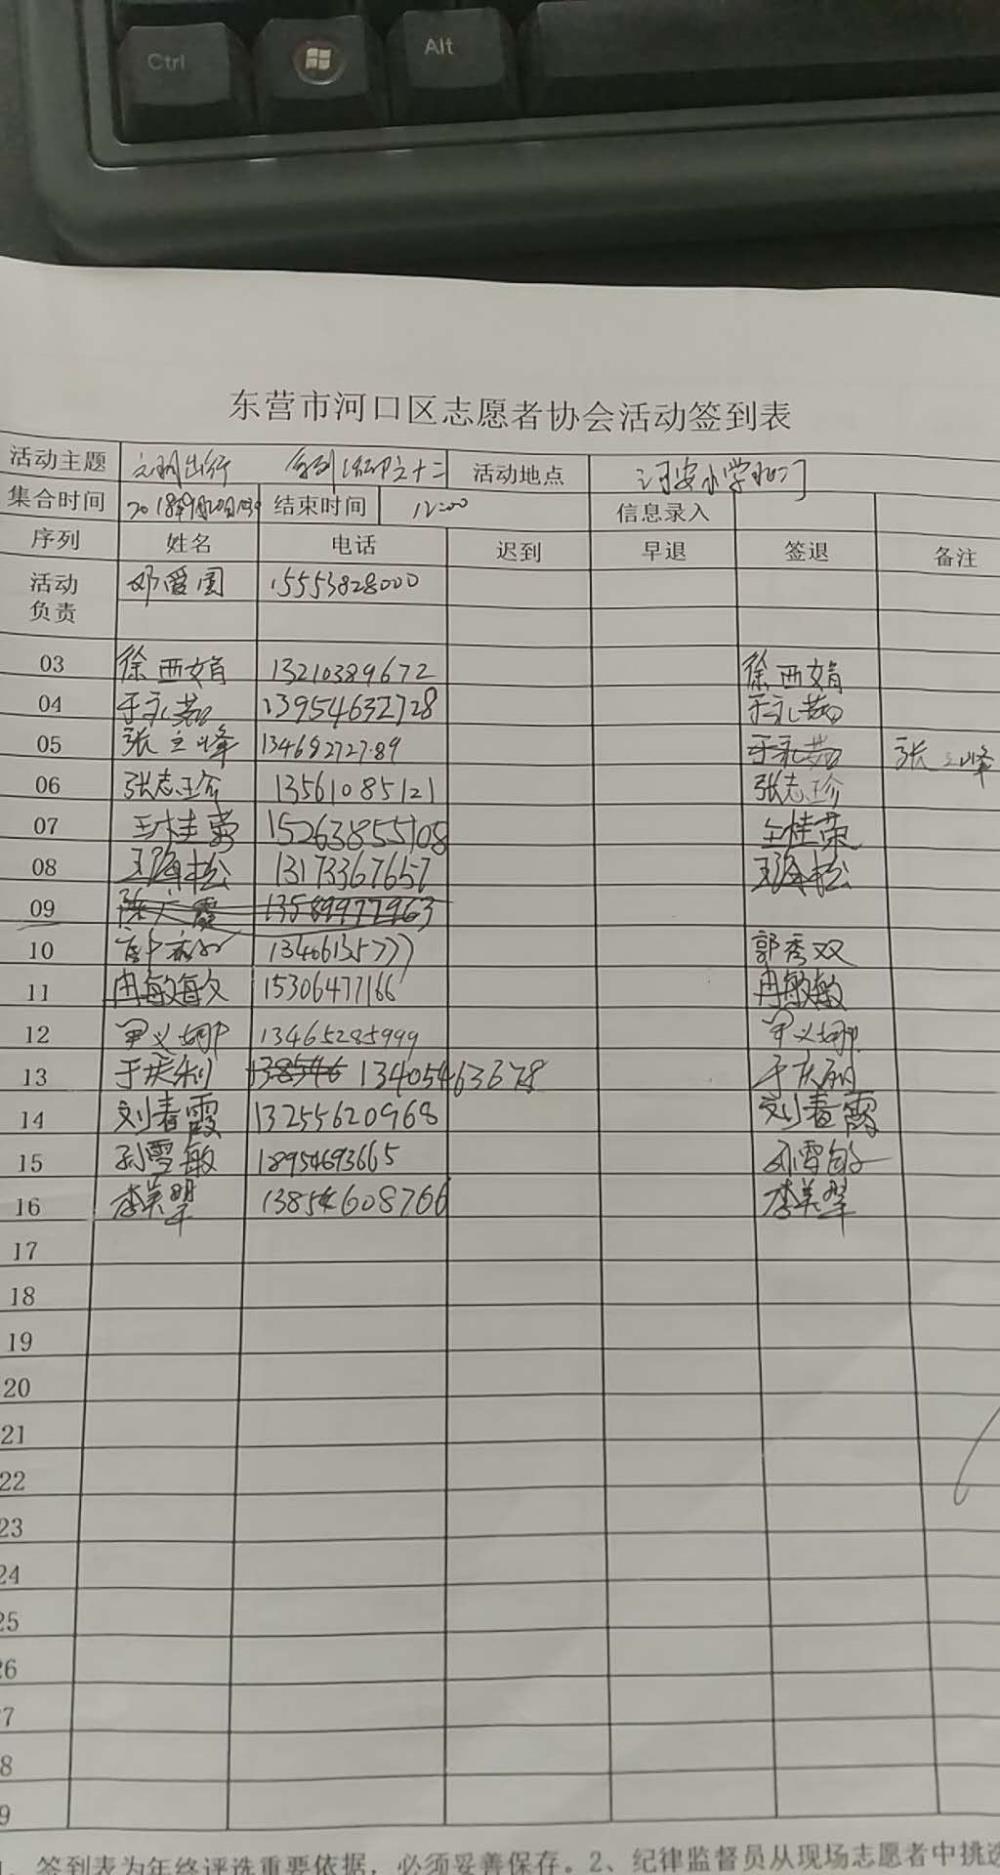 Ctrl Alt
东营市河口区志愿者协会活动签到表
活动主题 文明出行 系列活动之十二 活动地点 河安小学北门
集合时间 2018年9月20日 结束时间 12:00 信息录入
序列 姓名 电话 迟到 早退 签退 备注
活动负责 邓爱国 15553828000
03 徐西娟 13210389672 徐西娟
04 于礼茹 13954632728 于礼茹
05 张立峰 13468272789 于礼茹 张立峰
06 张志珍 13561085121 张志珍
07 王桂荣 15263855108 王桂荣
08 王海松 13173367657 王海松
09 陈广霞 13589977963
10 郭秀双 郭秀双
11 冉敏敏 15306477166 冉敏敏
12 13465285999
13 于庆利 138546 13405463678 于庆利
14 刘春霞 13255620968 刘春霞
15 孙雪敏 18954693665 孙雪敏
16 李美翠 13854608766 李美翠
17
18
19
20
21
22
23
24
25
26
7
8
9
签到表为年终评选重要依据，必须妥善保存。2、纪律监督员从现场志愿者中挑选